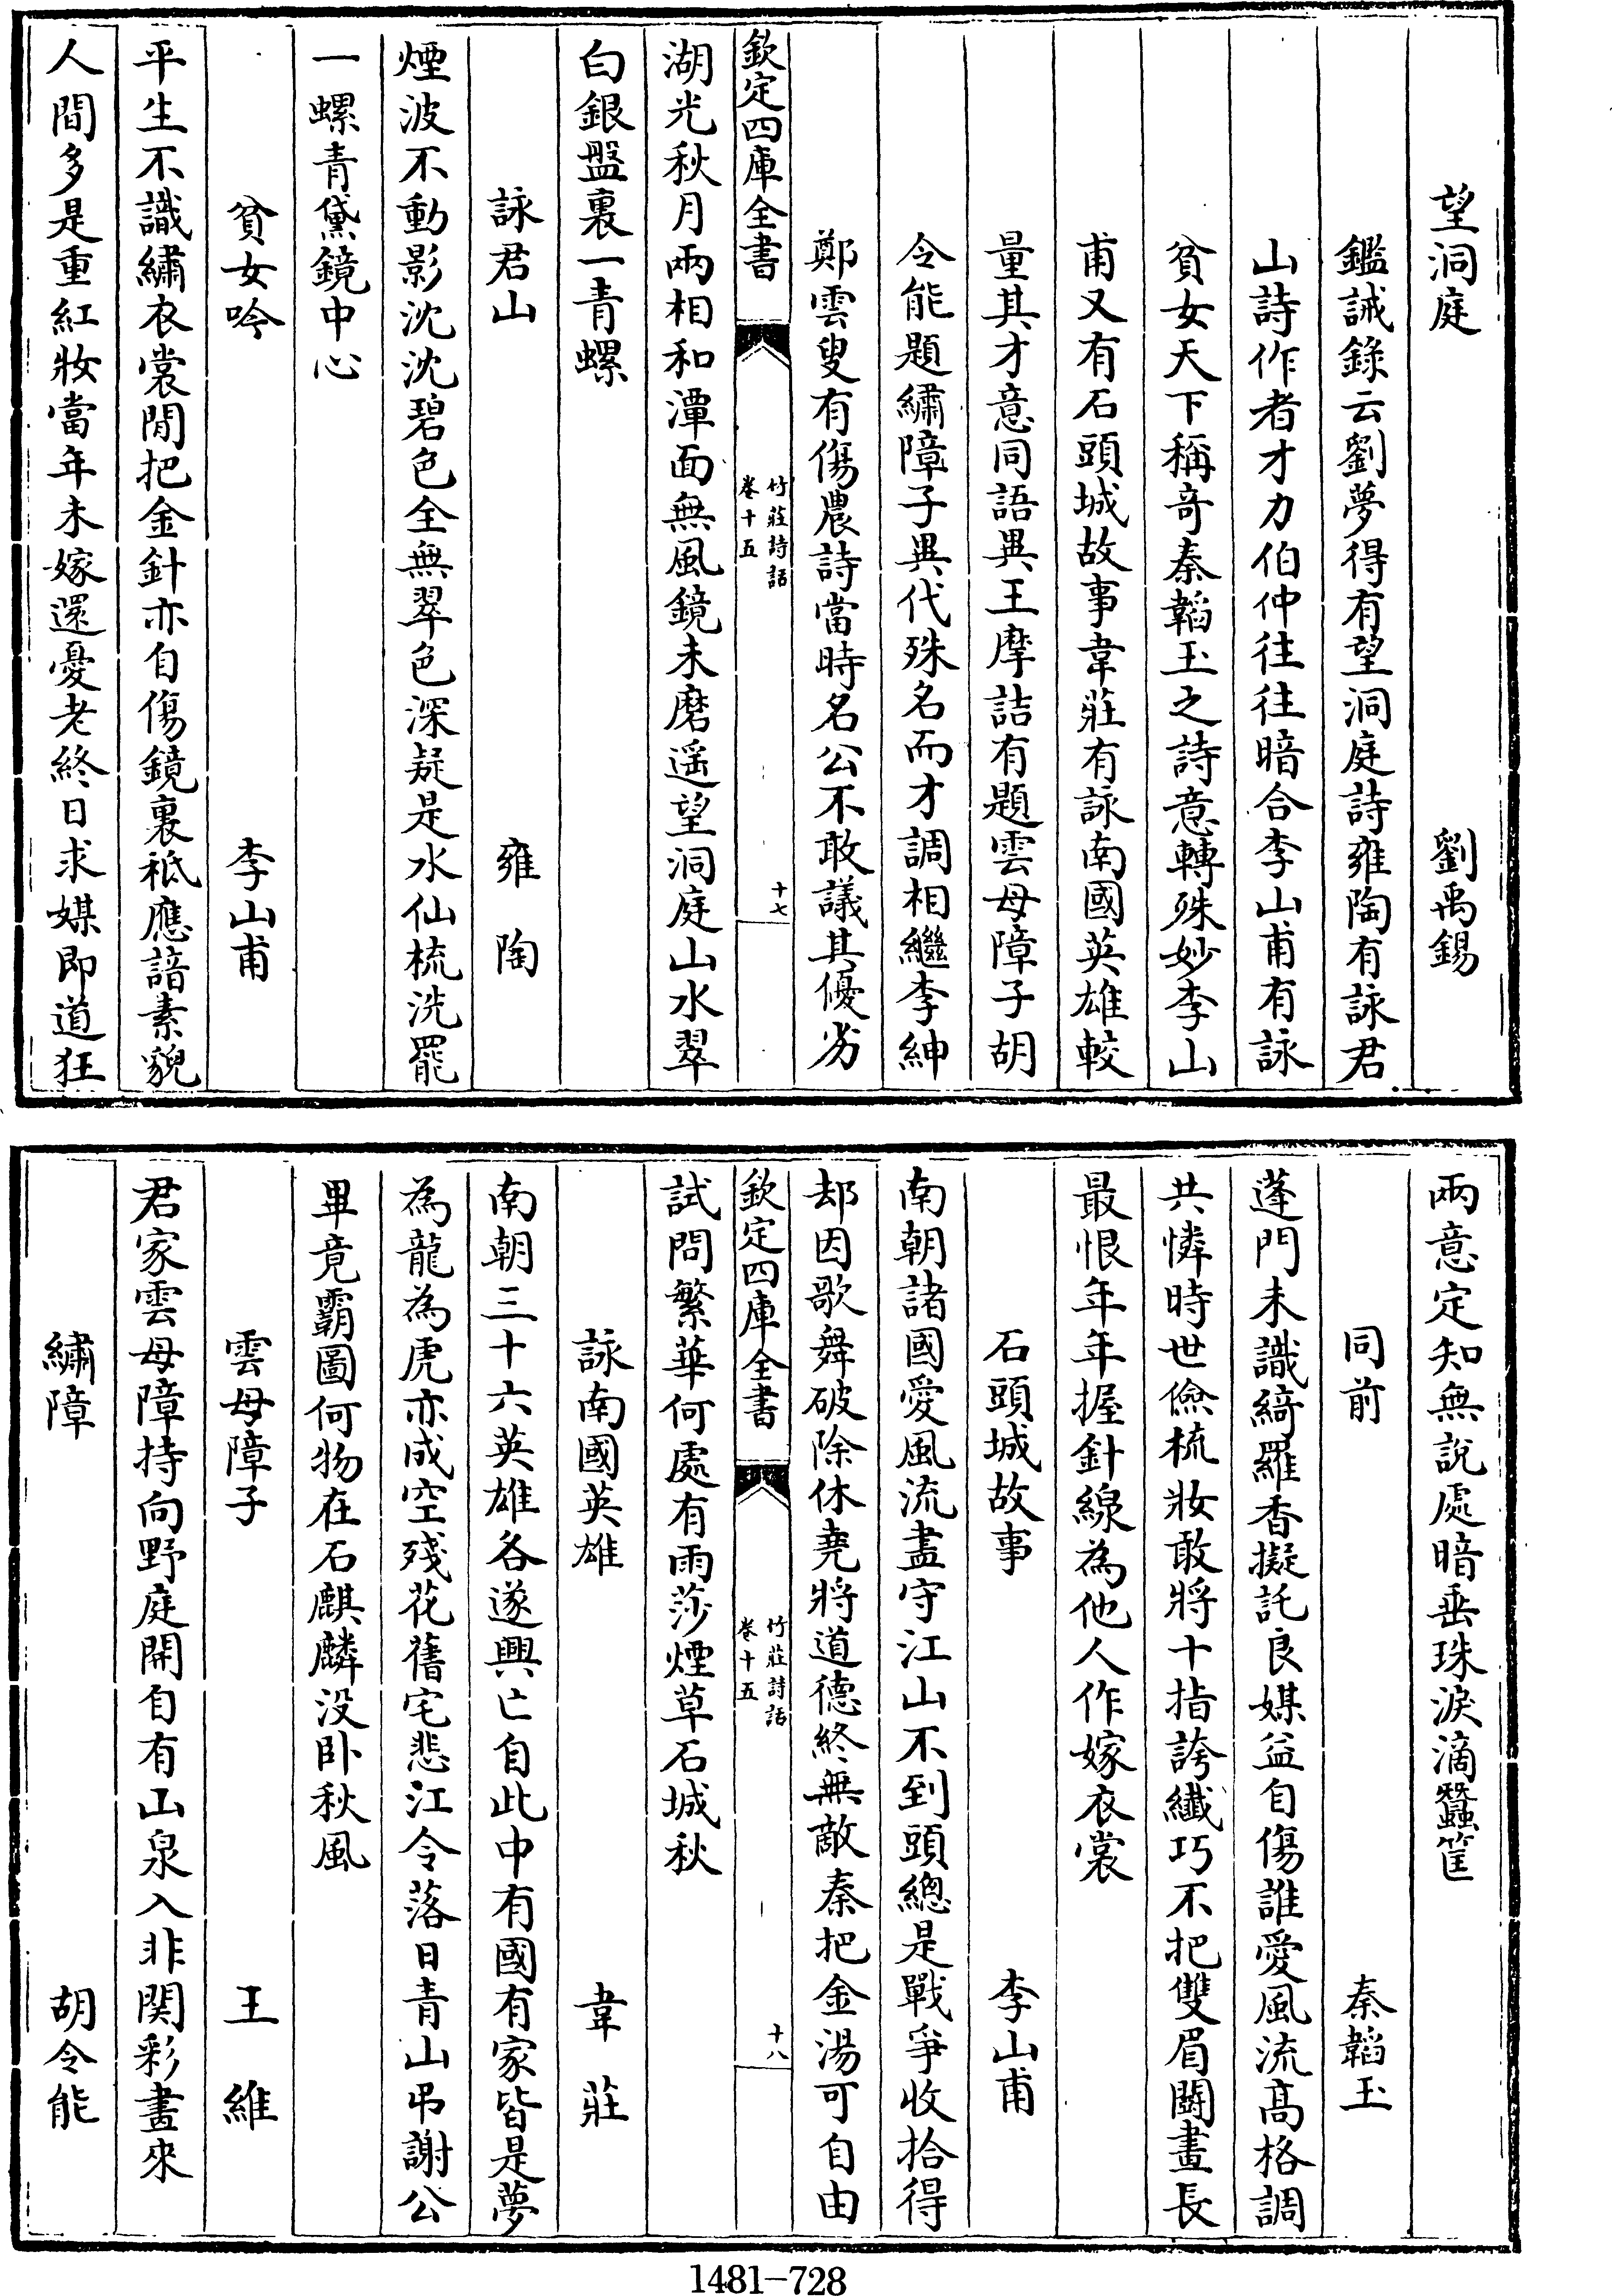 望洞庭　劉禹錫
鑑誡錄云劉夢得有望洞庭詩雍陶有詠君
山詩作者才力伯仲往往暗合李山甫有詠
貧女天下稱竒秦韜玉之詩意轉殊妙李山
甫又有石頭城故事韋莊有詠南國英雄較
量其才意同語異王摩詰有題雲母障子胡
令能題繡障子異代殊名而才調相繼李紳
鄭雲叟有傷農詩當時名公不敢議其優劣
欽定四庫全書　竹莊詩話　卷十五　十七
湖光秋月兩相和潭面無風鏡未磨遥望洞庭山水翠
白銀盤裏一青螺
詠君山　雍陶
煙波不動影沈沈碧色全無翠色深疑是水仙梳洗罷
一螺青黛鏡中心
貧女吟　李山甫
平生不識繡衣裳閒把金針亦自傷鏡裏秪應諳素貌
人間多是重紅妝當年未嫁還憂老終日求媒即道狂
兩意定知無說處暗垂珠淚滴蠶筐
同前　秦韜玉
蓬門未識綺羅香擬託良媒益自傷誰愛風流髙格調
共憐時世儉梳妝敢將十指誇纖巧不把雙眉鬭畫長
最恨年年握針線為他人作嫁衣裳
石頭城故事　李山甫
南朝諸國愛風流盡守江山不到頭總是戰爭收拾得
却因歌舞破除休堯將道德終無敵秦把金湯可自由
欽定四庫全書　竹莊詩話　卷十五　十八
試問繁華何處有雨莎煙草石城秋
詠南國英雄　韋莊
南朝三十六英雄各遂興亡自此中有國有家皆是夢
為龍為虎亦成空殘花舊宅悲江令落日青山弔謝公
畢竟霸圖何物在石麒麟没卧秋風
雲母障子　王維
君家雲母障持向野庭開自有山泉入非関彩畫來
繡障　胡令能
1481-728